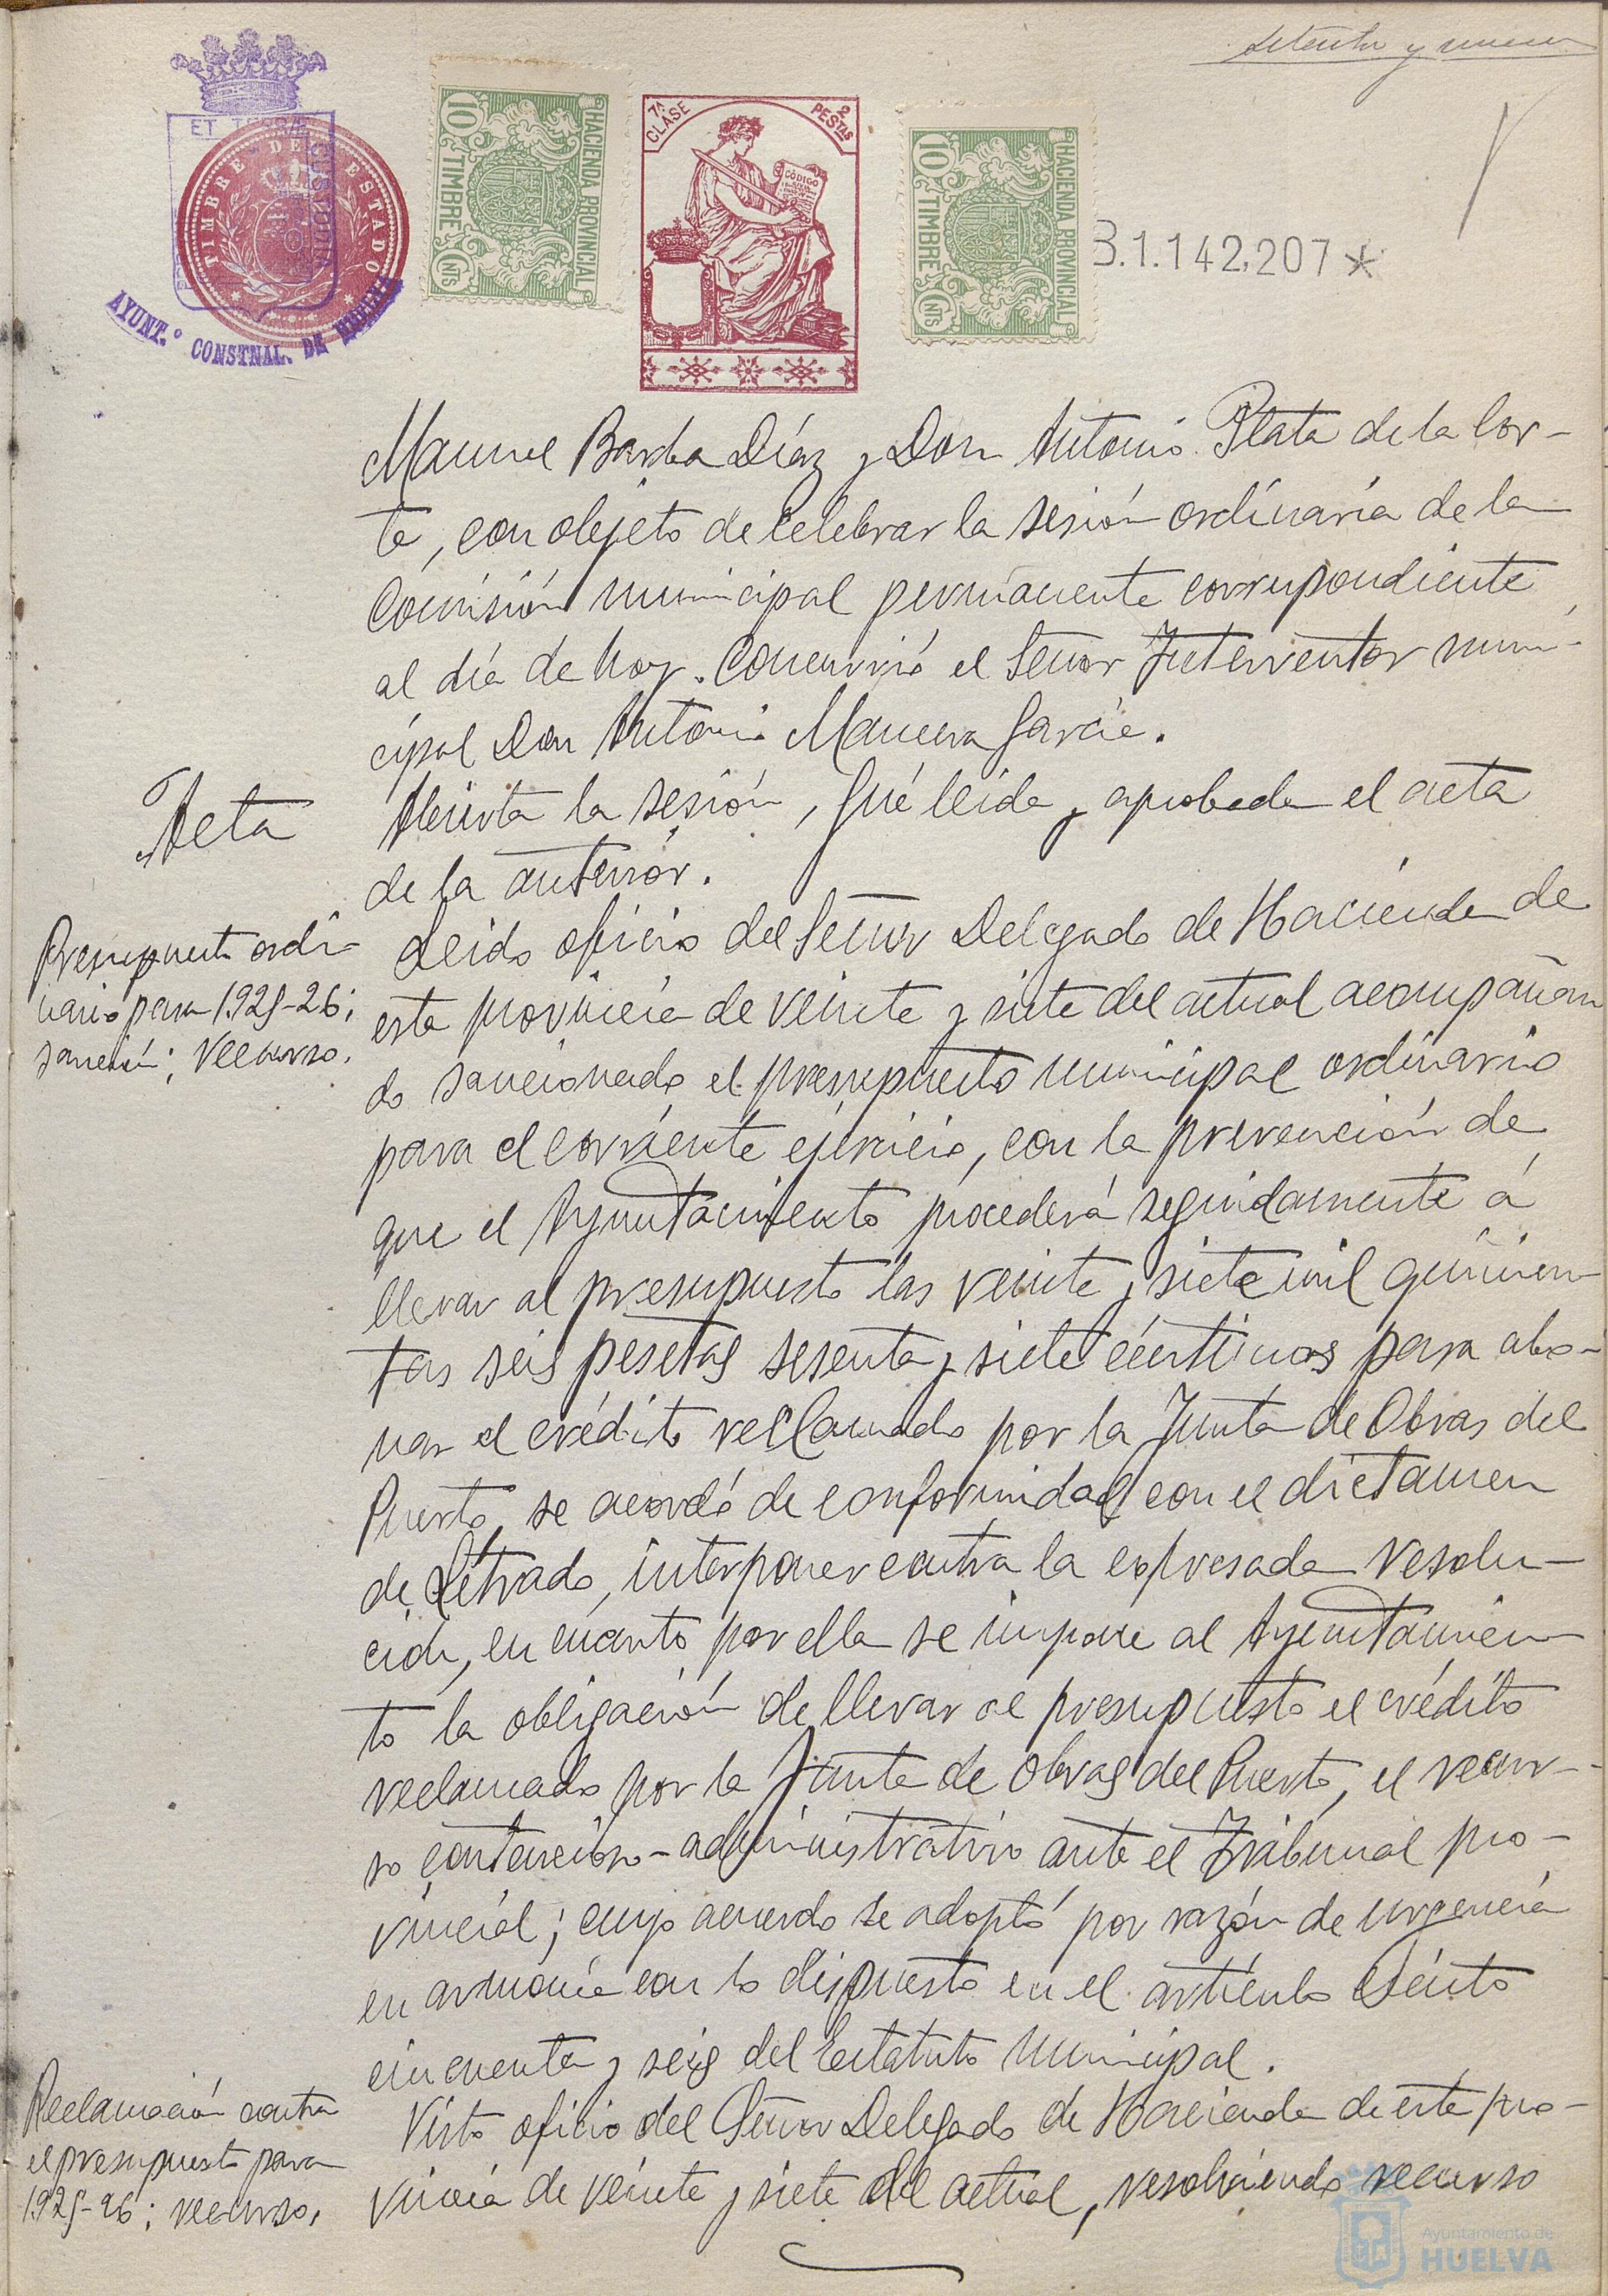 setenta y nueve
ET TERRÆ
CUSTODIA
TIMBRE DEL ESTADO
AYUNT.º CONSTNAL. DE HUELVA
10 TIMBRE CNTS
HACIENDA PROVINCIAL
7ª CLASE
2 PESTAS
CÓDIGO
10 TIMBRE CNTS
HACIENDA PROVINCIAL
B.1.142,207 *
Manuel Barba Díaz y Don Antonio Plata de la Cor-
te, con objeto de celebrar la sesión ordinaria de la
Comisión municipal permanente correspondiente
al día de hoy. Concurrió el Señor Interventor muni-
cipal Don Antonio Mancera García.
Acta
Abierta la sesión, fué leída y aprobada el acta
de la anterior.
Presupuesto ordi-
nario para 1925-26;
sanción; recurso.
Leido oficio del Señor Delegado de Hacienda de
esta provincia de veinte y siete del actual acompañan
do sancionado el presupuesto municipal ordinario
para el corriente ejercicio, con la prevención de
que el Ayuntamiento procederá seguidamente á
llevar al presupuesto las veinte y siete mil quinien-
tas seis pesetas sesenta y siete céntimos para abo-
nar el crédito reclamado por la Junta de Obras del
Puerto, se acordó de conformidad con el dictamen
de Letrado, interponer contra la expresada resolu-
ción, en cuanto por ella se impone al Ayuntamien-
to la obligación de llevar al presupuesto el crédito
reclamado por la Junta de Obras del Puerto, el recur-
so contencioso-administrativo ante el Tribunal pro-
vincial; cuyo acuerdo se adoptó por razón de urgencia
en armonía con lo dispuesto en el artículo ciento
cincuenta y seis del Estatuto municipal.
Reclamación contra
el presupuesto para
1925-26; recurso.
Visto oficio del Señor Delegado de Hacienda de esta pro-
vincia de veinte y siete del actual, resolviendo recurso
Ayuntamiento de
HUELVA